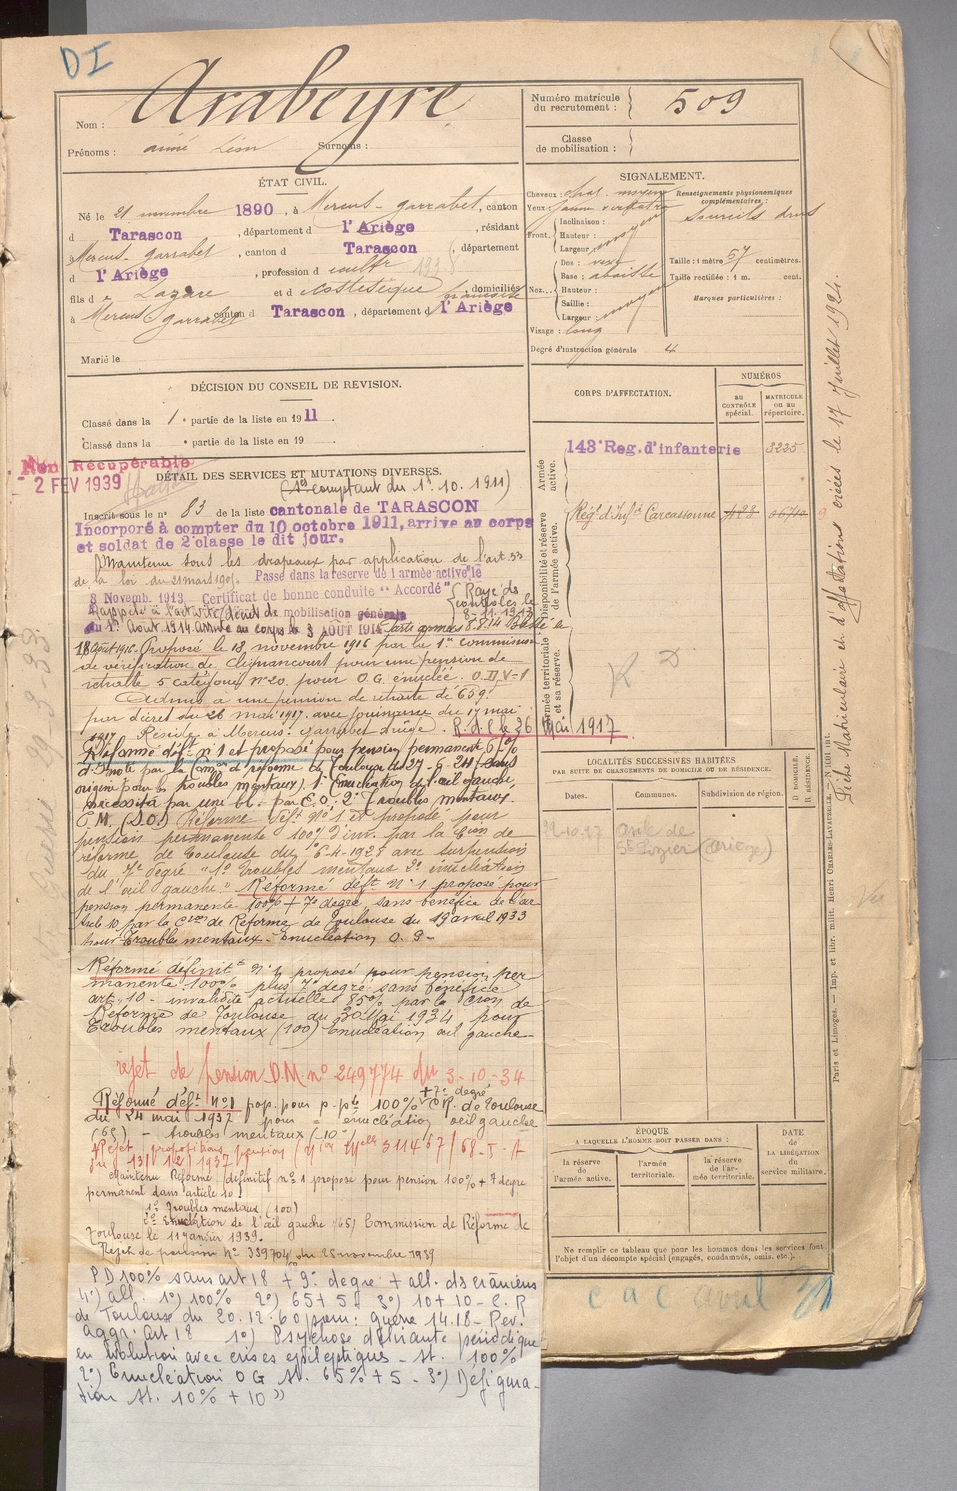 DI
Arabeyre
Nom :
Prénoms : Aimé Léon Surnoms :
Numéro matricule du recrutement : 509
Classe de mobilisation :
ÉTAT CIVIL.
Né le 21 novembre 1890, à Mercus-Garrabet, canton
d Tarascon, département d l'Ariège, résidant
Mercus-Garrabet, canton d Tarascon, département
d l'Ariège, profession d cultr
fils de Lazare et d domiciliés
à Mercus Garrabet canton d Tarascon, département d l'Ariège
Marié le
SIGNALEMENT.
Cheveux : chat. moyen
Yeux : jaune verdâtre
Front, Inclinaison :
Hauteur : moyen
Largeur
Nez... Dos : vexe
Base : abaissée
Hauteur :
Saillie : moyen
Largeur
Visage : long
Renseignements physionomiques complémentaires :
Sourcils drus
Taille : 1 mètre 57 centimètres.
Taille rectifiée : 1 m. cent.
Marques particulières :
Degré d'instruction générale 4
DÉCISION DU CONSEIL DE REVISION.
Classé dans la 1e partie de la liste en 1911
Classé dans la e partie de la liste en 19
Non Récupérable
- 2 FEV 1939
DÉTAIL DES SERVICES ET MUTATIONS DIVERSES.
(comptant du 1er.10.1911)
Inscrit sous le no 83 de la liste cantonale de TARASCON
Incorporé à compter du 10 octobre 1911, arrivé au corps
et soldat de 2e classe le dit jour.
Maintenu sous les drapeaux par application de l'art. 33
de la loi du 21 mars 1905. Passé dans la réserve de l'armée active le
8 Novemb. 1913 Certificat de bonne conduite "Accordé" Rayé des contrôles le 8-11-1913
Rappelé à l'activité (décret de mobilisation générale
du 1er Août 1914 Arrivé au corps le 3 AOUT 1914
18 août 1916. Proposé le 18 novembre 1916 par la 1re commission
de vérification de Clignancourt pour une pension de
retraite 5e catégorie no 20. pour O.G. énuclée. O.D. V=1
Admis à une pension de retraite de 659f
par décret du 26 mai 1917. avec jouissance du 17 mai
1917 Réside à Mercus Garrabet Ariège. R.d.C. le 26 Mai 1917
Réformé déft no 1 et proposé pour pension permanente 67%
d'invté par la Comon de réforme de Toulouse du 27-6-24 (sans
origine pour les troubles mentaux). 1o Enucléation de l'œil gauche,
nécessité par une bl. par E.O. 2o Troubles mentaux.
E.M. (S.O.) Réformé déft No 1 et proposé pour
pension permanente 100% d'inv. par la Con de
réforme de Toulouse du 6-4-1928 avec surpension
du 7e degré "1o Troubles mentaux 2o énucléation
de l'œil gauche." Réformé déft No 1 proposé pour
pension permanente 100% + 7e degré, sans bénéfice de l'ar
ticle 10 par la Con de Réforme de Toulouse du 19 avril 1933
pour Troubles mentaux - Enucléation O.G -
Réformé définitt No 1 proposé pour pension per
manente 100% plus 7e degré sans bénéfice
art. 10 - invalidité actuelle 85% par la Con de
Réforme de Toulouse du 30 Mai 1934, pour
Troubles mentaux (100) Enucléation œil gauche -
rejet de pension D.M no 249774 du 3-10-34
Réformé déft no 1 pop. pour p.pte 100% + 7e degré C.R. de Toulouse
du 24 mai 1937 pour = énucléation œil gauche
(65) - troubles mentaux (10-
Rejet propositions pension 311467/68-I-A
du 13/12/1937
Maintenu Réformé définitif no 1 proposé pour pension 100% + 7 degré
permanent dans article 10.
1o Troubles mentaux (100)
2o Enucléation de l'œil gauche (65) Commission de Réforme de
Toulouse le 11 janvier 1939.
Rejet de pension No 339704 du 28 novembre 1939
PD 100% sans art 18 + 9e degré + all. ds crâniens
4o) all. 1o) 100% 2o) 65+5 3o) 10+10 - C.R
de Toulouse du 20.12.60 ppm : guerre 14.18 - Rev.
aggr. art 18 1o) Psychose délirante périodique
en évolution avec crises épileptiques - st. 100%
2o) Enucléation OG st. 65% + 5 - 3o) Défigura-
tion st. 10% + 10 »
CORPS D'AFFECTATION.
NUMÉROS
AU CONTRÔLE spécial.
MATRICULE ou au répertoire.
Armée active.
143e Reg. d'infanterie 3235
Disponibilité et réserve de l'armée active.
Régt d'Infie Carcassonne
Armée territoriale et sa réserve.
LOCALITÉS SUCCESSIVES HABITÉES
PAR SUITE DE CHANGEMENTS DE DOMICILE OU DE RÉSIDENCE.
Dates. Communes. Subdivision de région. D DOMICILE. R RÉSIDENCE.
asile de
St Lizier (Ariège)
ÉPOQUE
A LAQUELLE L'HOMME DOIT PASSER DANS :
la réserve de l'armée active.
l'armée territoriale.
la réserve de l'armée territoriale.
DATE de LA LIBÉRATION du service militaire.
Ne remplir ce tableau que pour les hommes dont les services font
l'objet d'un décompte spécial (engagés, condamnés, omis, etc.).
Fiche Matriculaire et d'affectations créées le 17 Juillet 1924.
Paris et Limoges. — Imp. et libr. milit. Henri CHARLES-LAVAUZELLE.